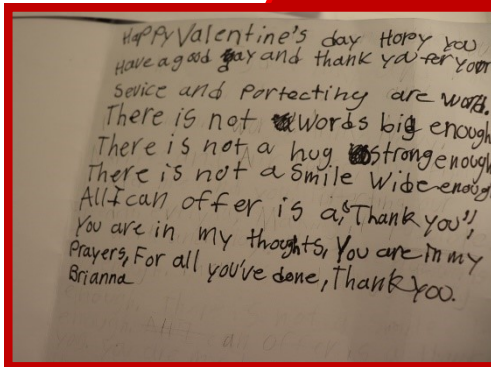 Happy Valentine's day Hopy you
Have a good day and thank you for your
Sevice and Portecting are world.
There is not words big enough
There is not a hug strong enough
There is not a Smile Wide enoug
All I can offer is a, "Thank you",
You are in my thoughts, You are in my
Prayers, For all you've done, Thank you.
Brianna